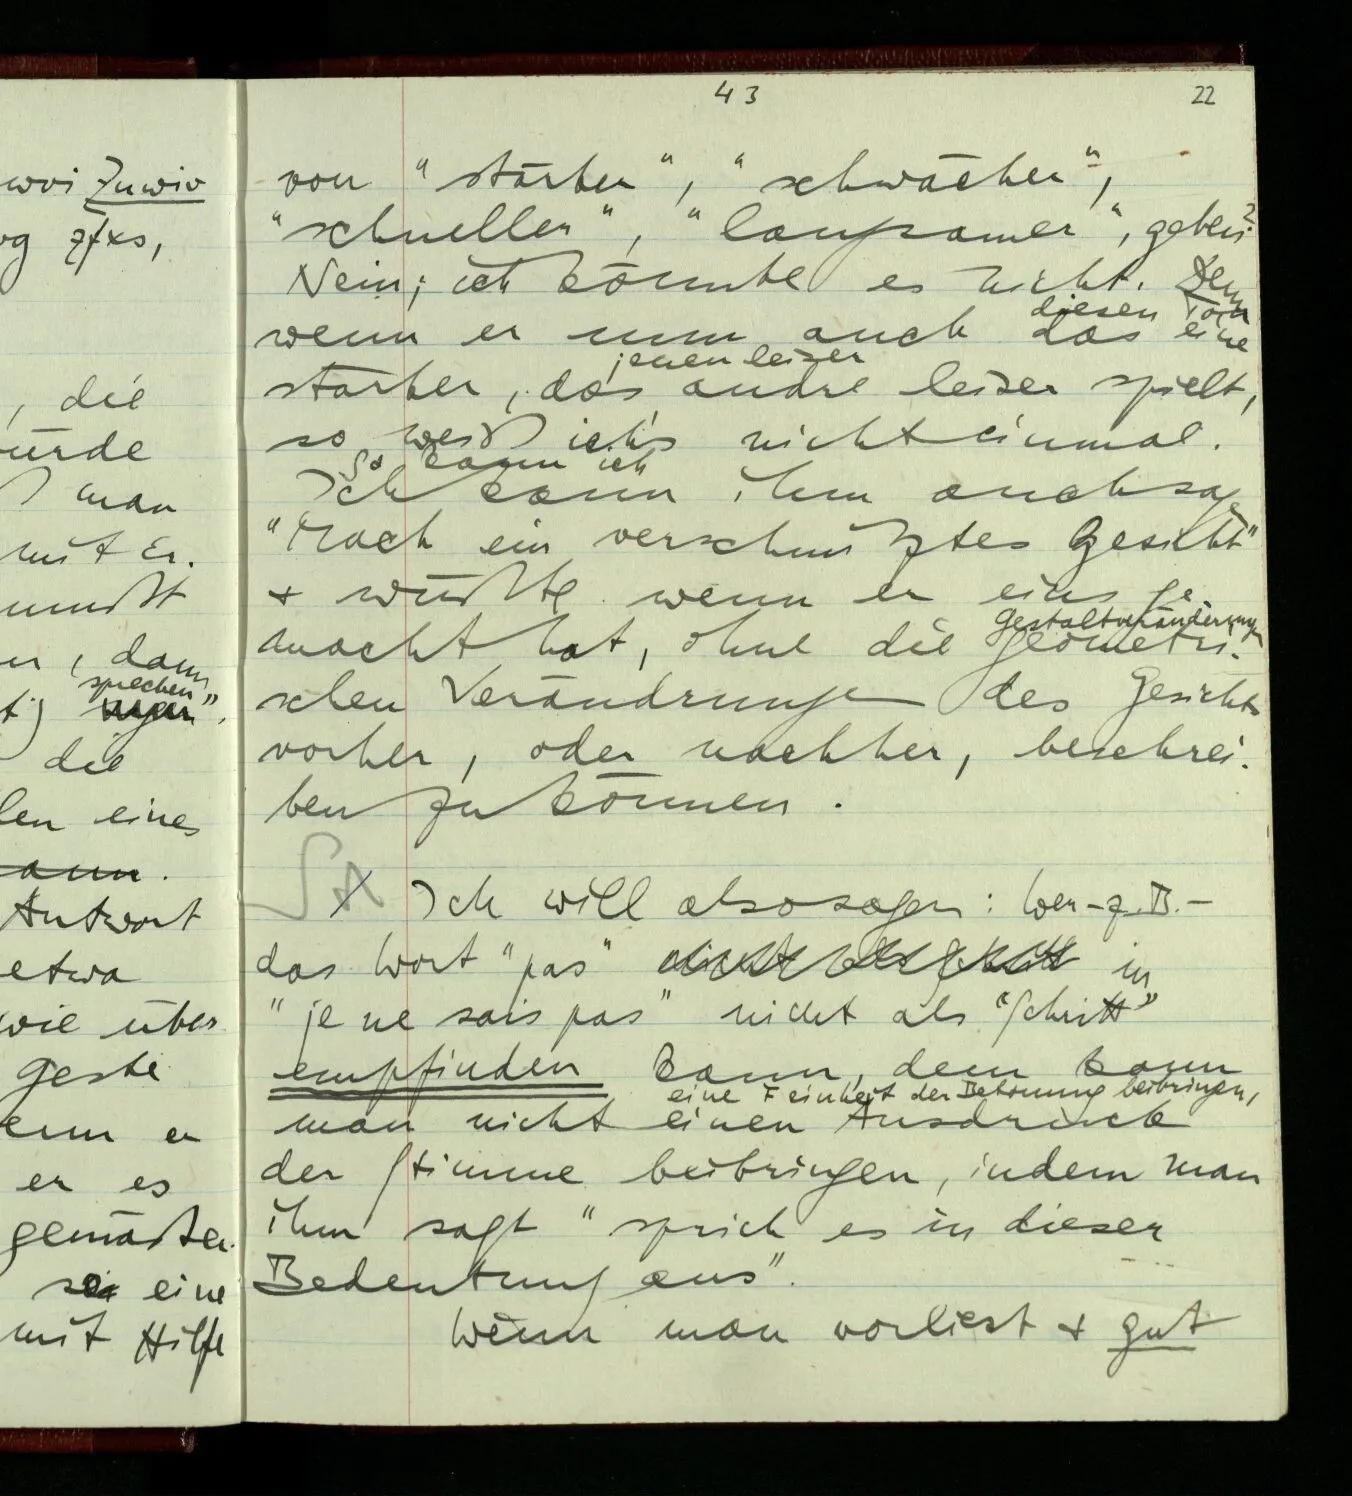 43
22
von "stärker", "schwächer",
"schneller", "langsamer", geben?
Nein; ich könnte es nicht. Denn
diesen Ton
wenn er nun auch das eine
jenen leiser
stärker, das andre leiser spielt,
so weiß ich's nicht einmal.
So kann ich
Ich kann ihm auch sag
"Mach ein verschmitztes Gesicht"
+ wüßte wenn er eins ge-
Gestaltveränderungen
macht hat, ohne die geometri-
schen Verändrungen des Gesichts
vorher, oder nachher, beschrei-
ben zu können.
S X Ich will also sagen: Wer – z.B. –
das Wort "pas" in
"je ne sais pas" nicht als "Schritt"
empfinden kann, dem kann
eine Feinheit der Betonung beibringen,
man nicht einen Ausdruck
der Stimme beibringen, indem man
ihm sagt "sprich es in dieser
Bedeutung aus".
Wenn man vorliest + gut
wvi Zuwiv
zfxs,
, die
würde
man
mit Er.
, dann
sprechen
".
die
len eines
kann.
Antwort
etwa
wie über
Geste
wenn er
er es
gemäßer
sei eine
mit Hilfe